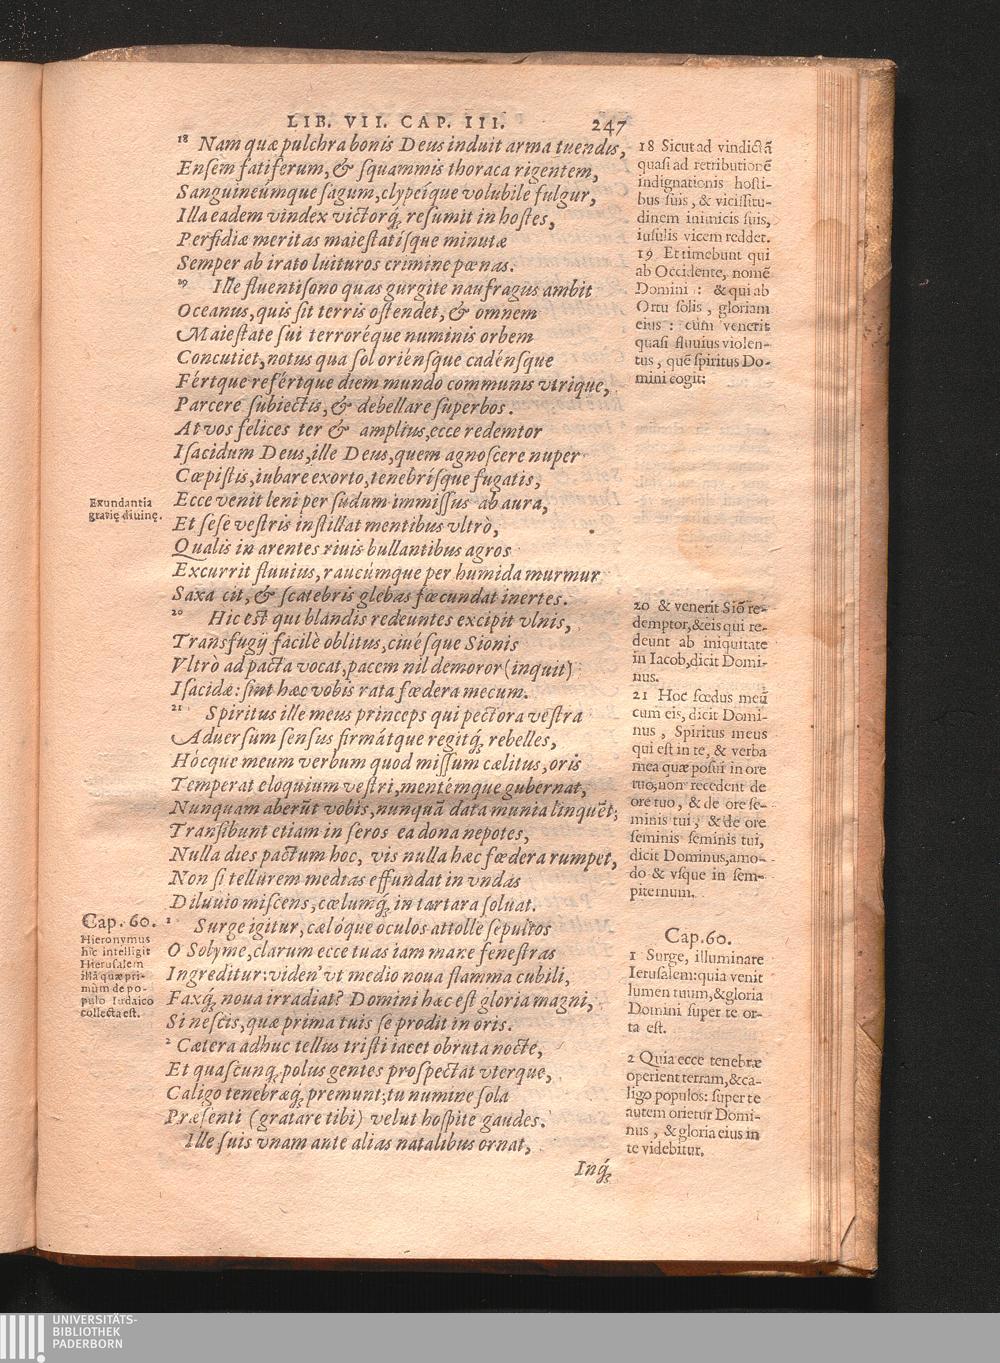 LIB. VII. CAP. III. 247
18 Nam quæ pulchra bonis Deus induit arma tuendis,
Ensem fatiferum, & squammis thoraca rigentem,
Sanguineúmque sagum, clypeíque volubile fulgur,
Illa eadem vindex victorq́; resumit in hostes,
Perfidiæ meritas maiestatísque minutæ
Semper ab irato luituros crimine pœnas.
19 Ille fluentisono quas gurgite naufragus ambit
Oceanus, quis sit terris ostendet, & omnem
Maiestate sui terroréque numinis orbem
Concutiet, notus qua sol oriénsque cadénsque
Fértque refértque diem mundo communis vtrique,
Parcere subiectis, & debellare superbos.
At vos felices ter & amplius, ecce redemtor
Isacidum Deus, ille Deus, quem agnoscere nuper
Cœpistis, iubare exorto, tenebrísque fugatis,
Ecce venit leni per sudum immissus ab aura,
Et sese vestris instillat mentibus vltrò,
Qualis in arentes riuis bullantibus agros
Excurrit fluuius, raucúmque per humida murmur
Saxa cit, & scatebris glebas fœcundat inertes.
20 Hic est qui blandis redeuntes excipit vlnis,
Transfugij facilè oblitus, ciuésque Sionis
Vltrò ad pacta vocat, pacem nil demoror (inquit)
Isacidæ: sint hæc vobis rata fœdera mecum.
21 Spiritus ille meus princeps qui pectora vestra
Aduersùm sensus firmátque regitq́; rebelles,
Hócque meum verbum quod missum cælitus, oris
Temperat eloquium vestri, mentémque gubernat,
Nunquam aberũt vobis, nunquã data munia linquẽt;
Transibunt etiam in seros ea dona nepotes,
Nulla dies pactum hoc, vis nulla hæc fœdera rumpet,
Non si tellurem medias effundat in vndas
Diluuio miscens, cœlumq́; in tartara soluat.
1 Surge igitur, cælóque oculos attolle sepultos
O Solyme, clarum ecce tuas iam mane fenestras
Ingreditur: viden' vt medio noua flamma cubili,
Faxq́; noua irradiat? Domini hæc est gloria magni,
Si nescis, quæ prima tuis se prodit in oris.
2 Cætera adhuc tellus tristi iacet obruta nocte,
Et quascunq; polus gentes prospectat vterque,
Caligo tenebræq́; premunt; tu numine sola
Præsenti (gratare tibi) velut hospite gaudes.
Ille suis vnam ante alias natalibus ornat,
Inq́;
Exundantia
gratię diuinę.
Cap. 60.
Hieronymus
hîc intelligit
Hierusalem
illã quæ pri-
mùm de po-
pulo Iudaico
collecta est.
18 Sicut ad vindictã
quasi ad retributionẽ
indignationis hosti-
bus suis, & vicissitu-
dinem inimicis suis,
insulis vicem reddet.
19 Et timebunt qui
ab Occidente, nomẽ
Domini : & qui ab
Ortu solis, gloriam
eius : cùm venerit
quasi fluuius violen-
tus, quẽ spiritus Do-
mini cogit:
20 & venerit Siõ re-
demptor, & eis qui re-
deunt ab iniquitate
in Iacob, dicit Domi-
nus.
21 Hoc fœdus meũ
cum eis, dicit Domi-
nus, Spiritus meus
qui est in te, & verba
mea quæ posui in ore
tuo, non recedent de
ore tuo, & de ore se-
minis tui, & de ore
seminis seminis tui,
dicit Dominus, amo-
do & vsque in sem-
piternum.
Cap. 60.
1 Surge, illuminare
Ierusalem: quia venit
lumen tuum, & gloria
Domini super te or-
ta est.
2 Quia ecce tenebræ
operient terram, & ca-
ligo populos: super te
autem orietur Domi-
nus, & gloria eius in
te videbitur.
UNIVERSITÄTS-
BIBLIOTHEK
PADERBORN